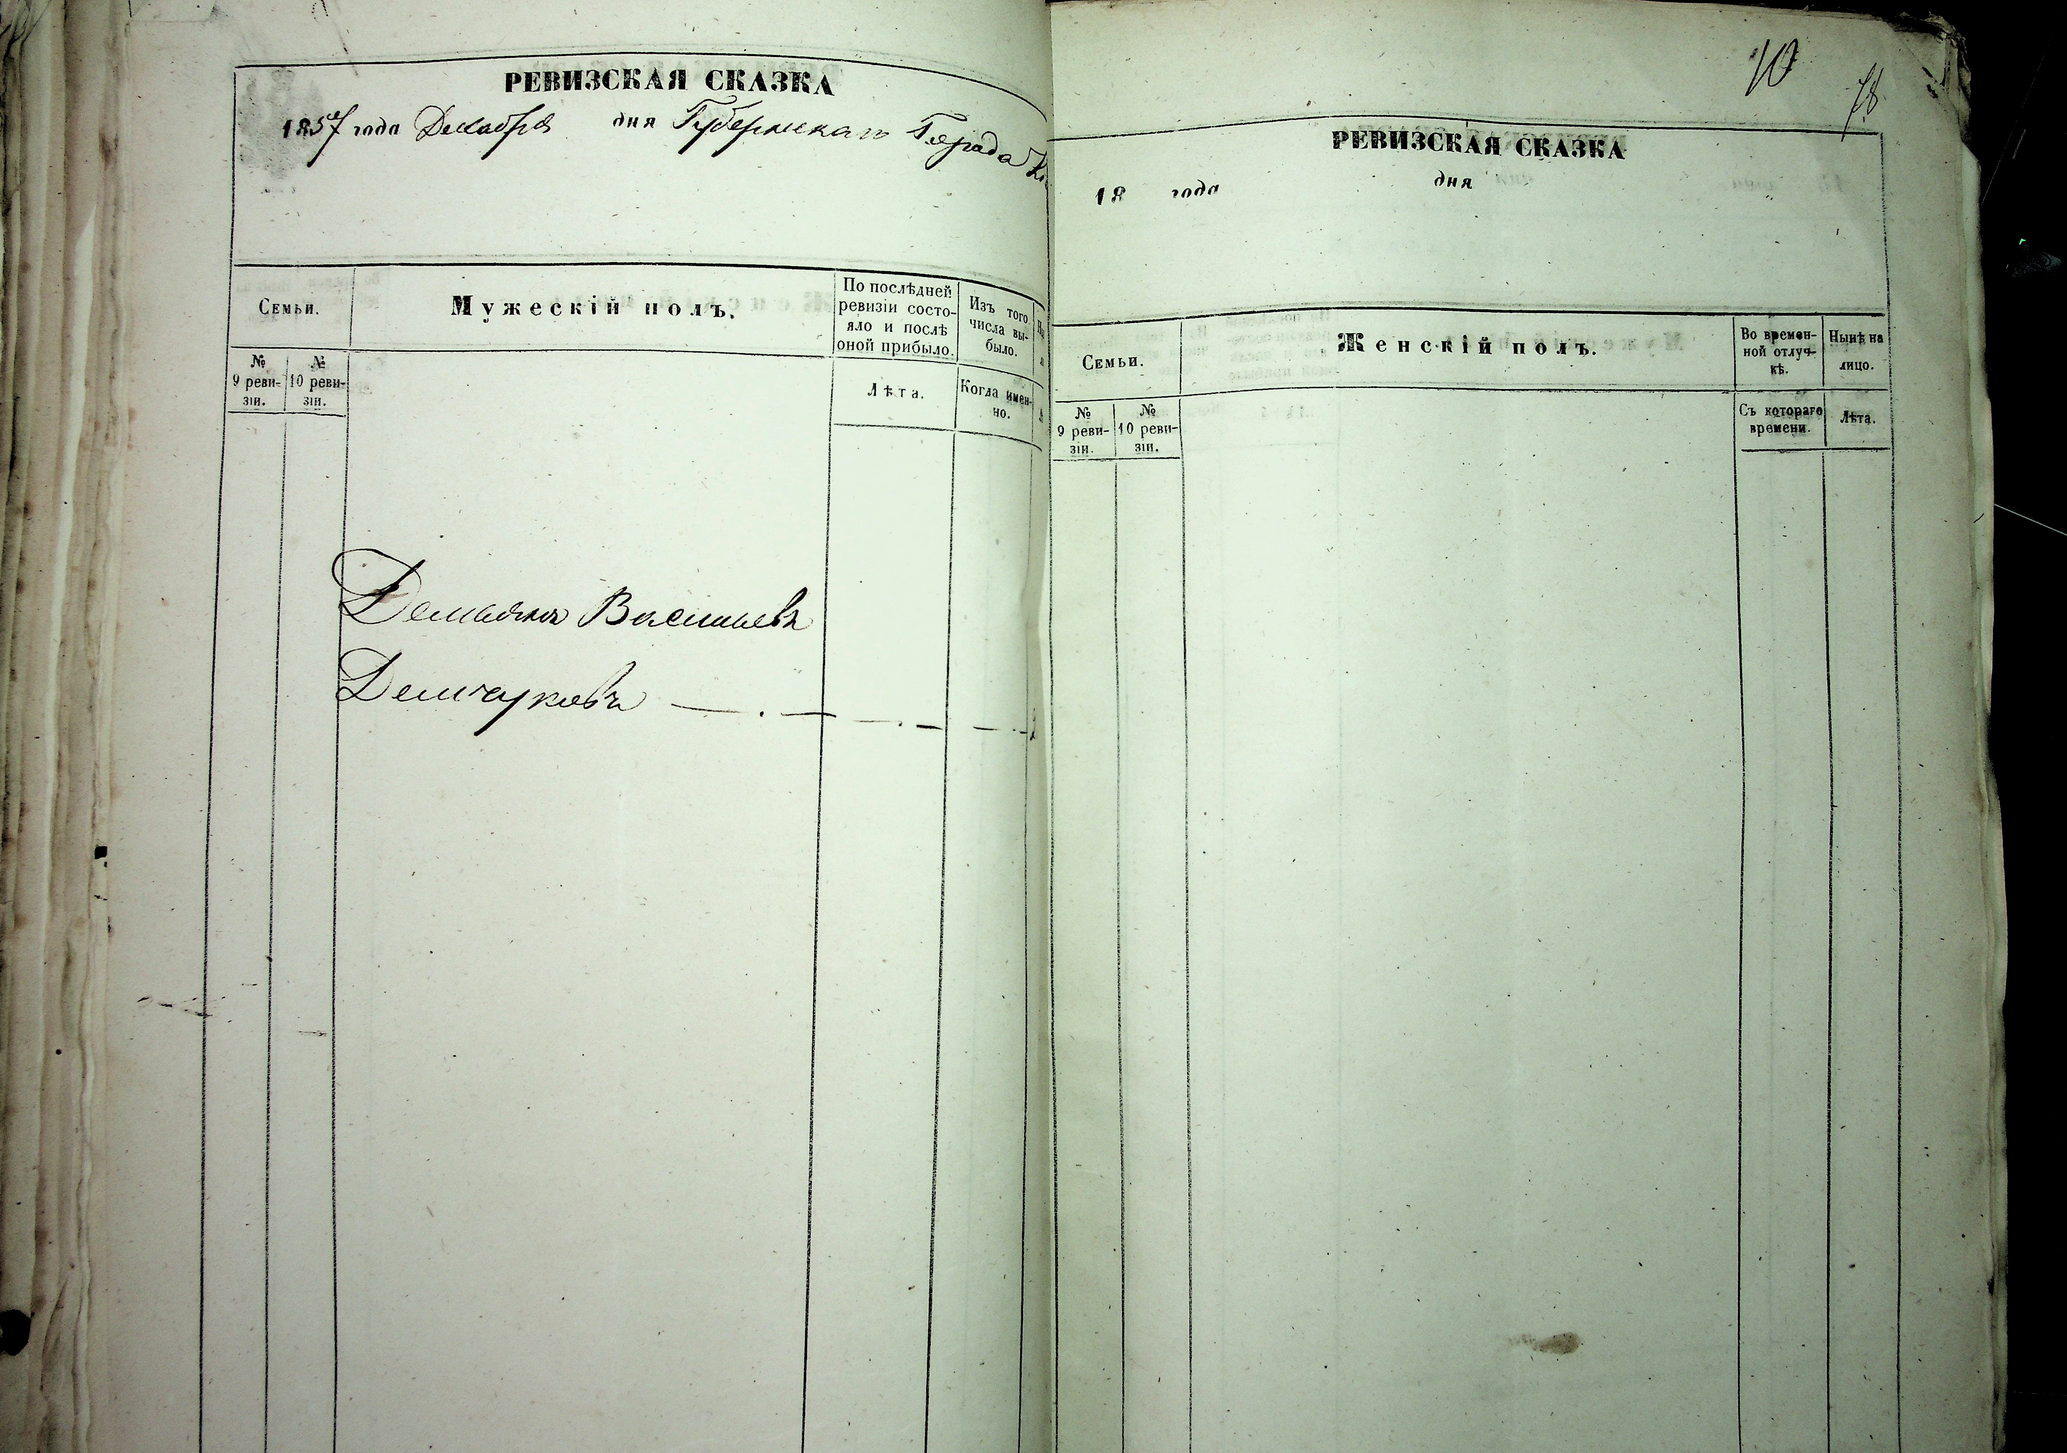 РЕВИЗСКАЯ СКАЗКА
1857 года Декабря дня Губернскаго Города
Семьи.
Мужескій полъ.
По послѣдней ревизіи состо-
яло и послѣ
оной прибыло.
Изъ того
числа вы-
было.
№
9 реви-
зіи.
№
10 реви-
зіи.
Лѣта.
Когда имен-
но.
Демьянъ Васильевъ
Демчуковъ
10
78
РЕВИЗСКАЯ СКАЗКА
18 года дня
Семьи.
Женскій полъ.
Во времен-
ной отлуч-
кѣ.
Нынѣ на
лицо.
№
9 реви-
зіи.
№
10 реви-
зіи.
Съ котораго
времени.
Лѣта.